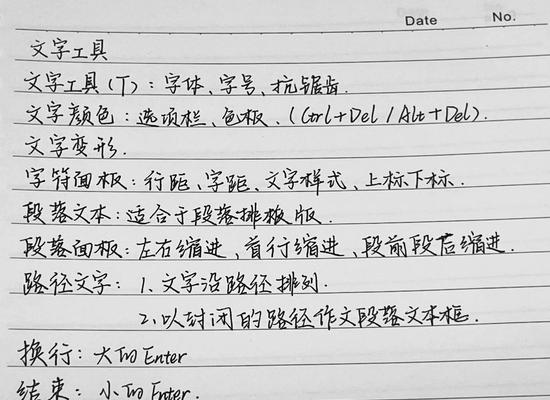 Date No.
文字工具
文字工具(T):字体、字号、抗锯齿.
文字颜色:选项栏、色板、(Ctrl+Del / Alt+Del).
文字变形.
字符面板:行距、字距、文字样式、上标下标.
段落文本:适合于段落排版.
段落面板:左右缩进、首行缩进、段前段后缩进.
路径文字: 1、文字沿路径排列.
2、以封闭的路径作文段落文本框.
换行:大的Enter
结束:小的Enter.